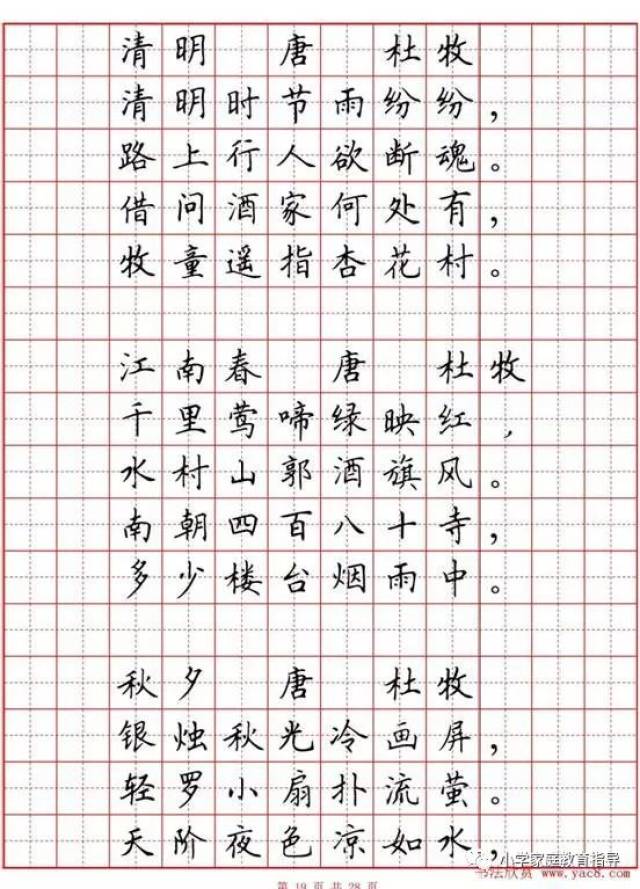 清明 唐 杜牧
清明时节雨纷纷，
路上行人欲断魂。
借问酒家何处有，
牧童遥指杏花村。
江南春 唐 杜牧
千里莺啼绿映红，
水村山郭酒旗风。
南朝四百八十寺，
多少楼台烟雨中。
秋夕 唐 杜牧
银烛秋光冷画屏，
轻罗小扇扑流萤。
天阶夜色凉如水，
小学家庭教育指导
书法欣赏 www.yac8.com
第 19 页 共 28 页